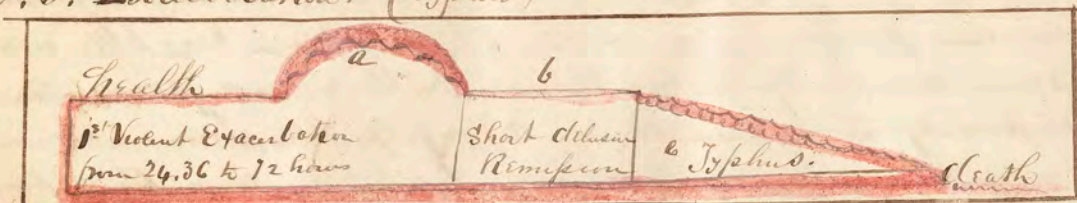 (Typhus)
a
b
health
1st Violent Exacerbation
from 24,36 to 72 hours
Short delusive
Remission
c Typhus.
death